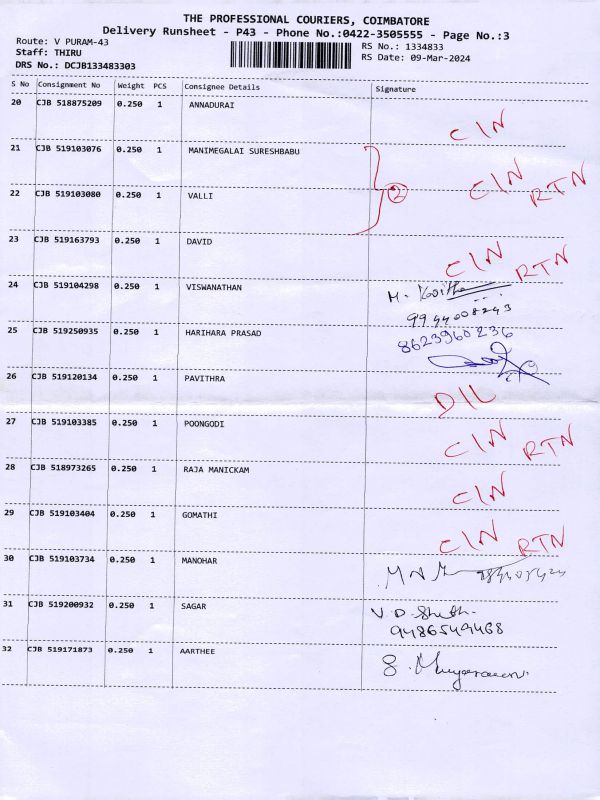 THE PROFESSIONAL COURIERS, COIMBATORE
Delivery Runsheet - P43 - Phone No.:0422-3505555 - Page No.:3
Route: V PURAM-43
RS No.: 1334833
Staff: THIRU
RS Date: 09-Mar-2024
DRS No.: DCJB133483303
S No Consignment No Weight PCS Consignee Details Signature
20 CJB 518875209 0.250 1 ANNADURAI
C/N
21 CJB 519103076 0.250 1 MANIMEGALAI SURESHBABU
C/N RTN
22 CJB 519103080 0.250 1 VALLI
2
23 CJB 519163793 0.250 1 DAVID
C/N RTN
24 CJB 519104298 0.250 1 VISWANATHAN
9944008243
25 CJB 519250935 0.250 1 HARIHARA PRASAD
8623960236
26 CJB 519120134 0.250 1 PAVITHRA
D/L
27 CJB 519103385 0.250 1 POONGODI
C/N RTN
28 CJB 518973265 0.250 1 RAJA MANICKAM
C/N
29 CJB 519103404 0.250 1 GOMATHI
C/N RTN
30 CJB 519103734 0.250 1 MANOHAR
31 CJB 519200932 0.250 1 SAGAR
V.D.
9486549468
32 CJB 519171873 0.250 1 AARTHEE